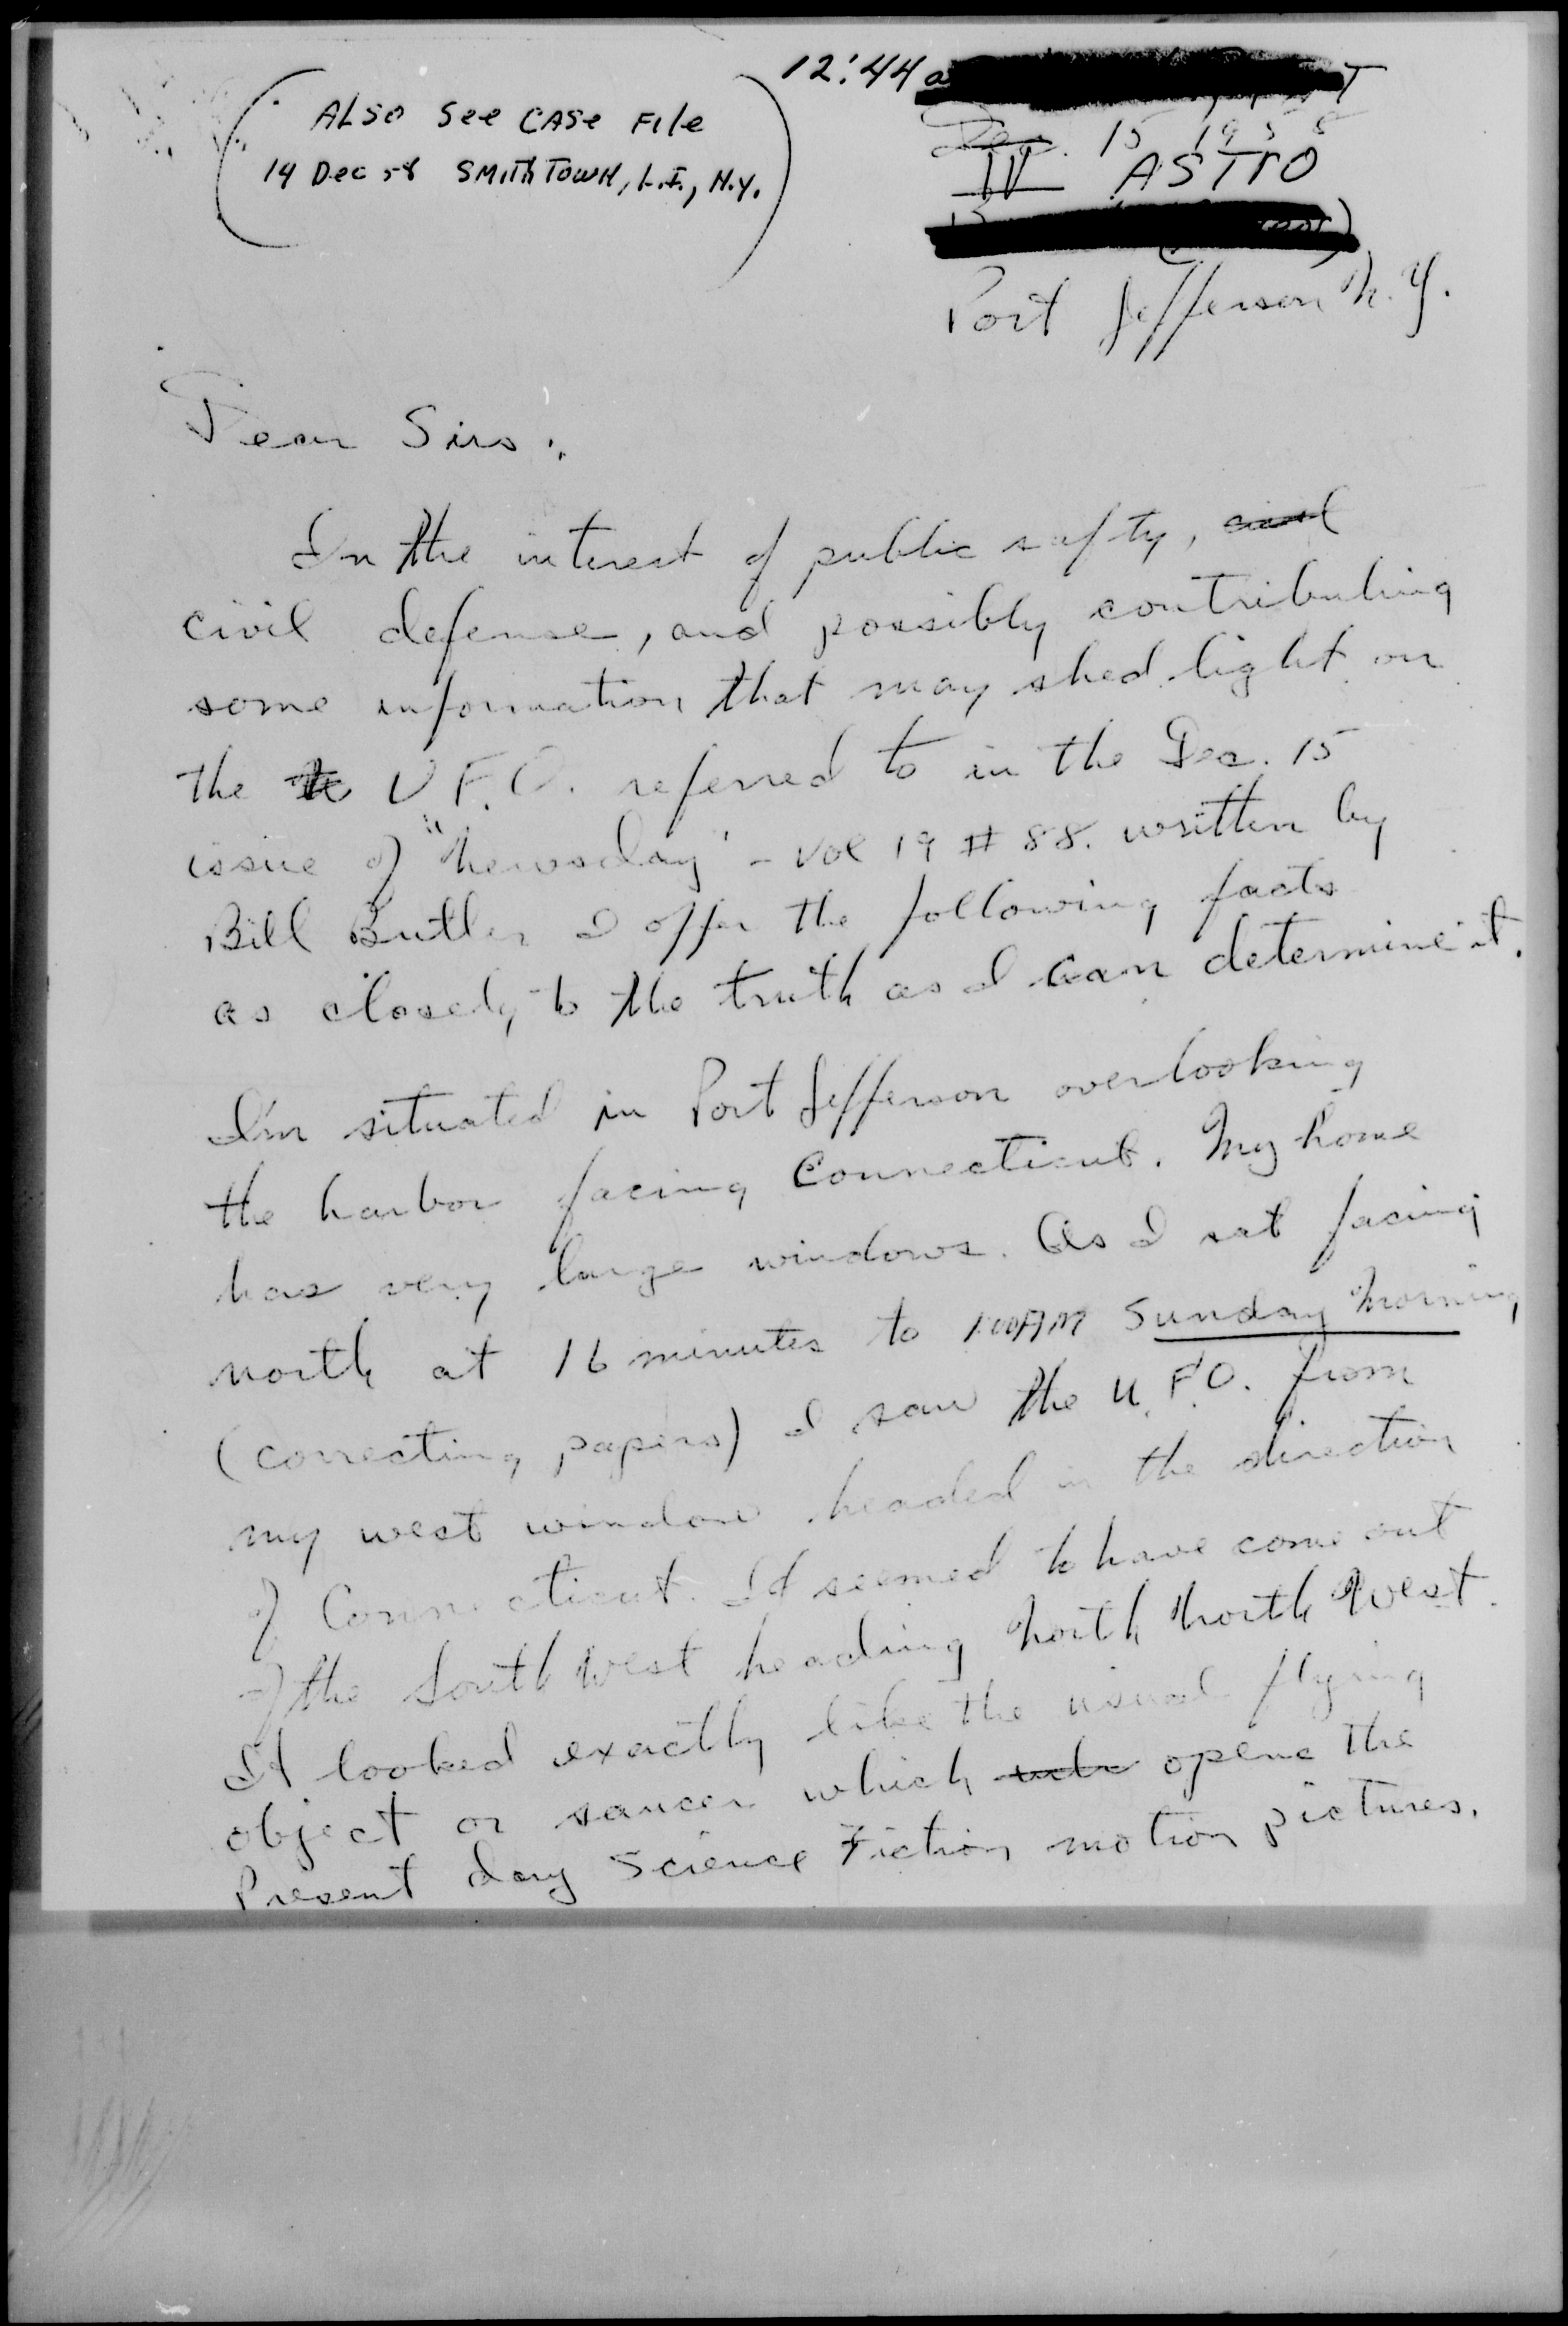 12:44 a
(ALSO See CASE File
14 Dec 58 SMITHTOWN, L.I., N.Y.)
Dec. 15 1958
IV ASTRO
Port Jefferson N.Y.
Dear Sirs:
In the interest of public safty,
civil defense, and possibly contributing
some information that may shed light on
the U F.O. referred to in the Dec. 15
issue of "Newsday" - Vol 19 # 88. written by
Bill Butler I offer the following facts
as closely to the truth as I can determine it.
I'm situated in Port Jefferson overlooking
the harbor facing Connecticut. My home
has very large windows. As I sat facing
north at 16 minutes to 1:00AM Sunday Morning
(correcting papers) I saw the U.F.O. from
my west window headed in the direction
of Connecticut. It seemed to have come out
of the South West heading North North West.
It looked exactly like the usual flying
object or saucer which opens the
Present day Science Fiction motion pictures.